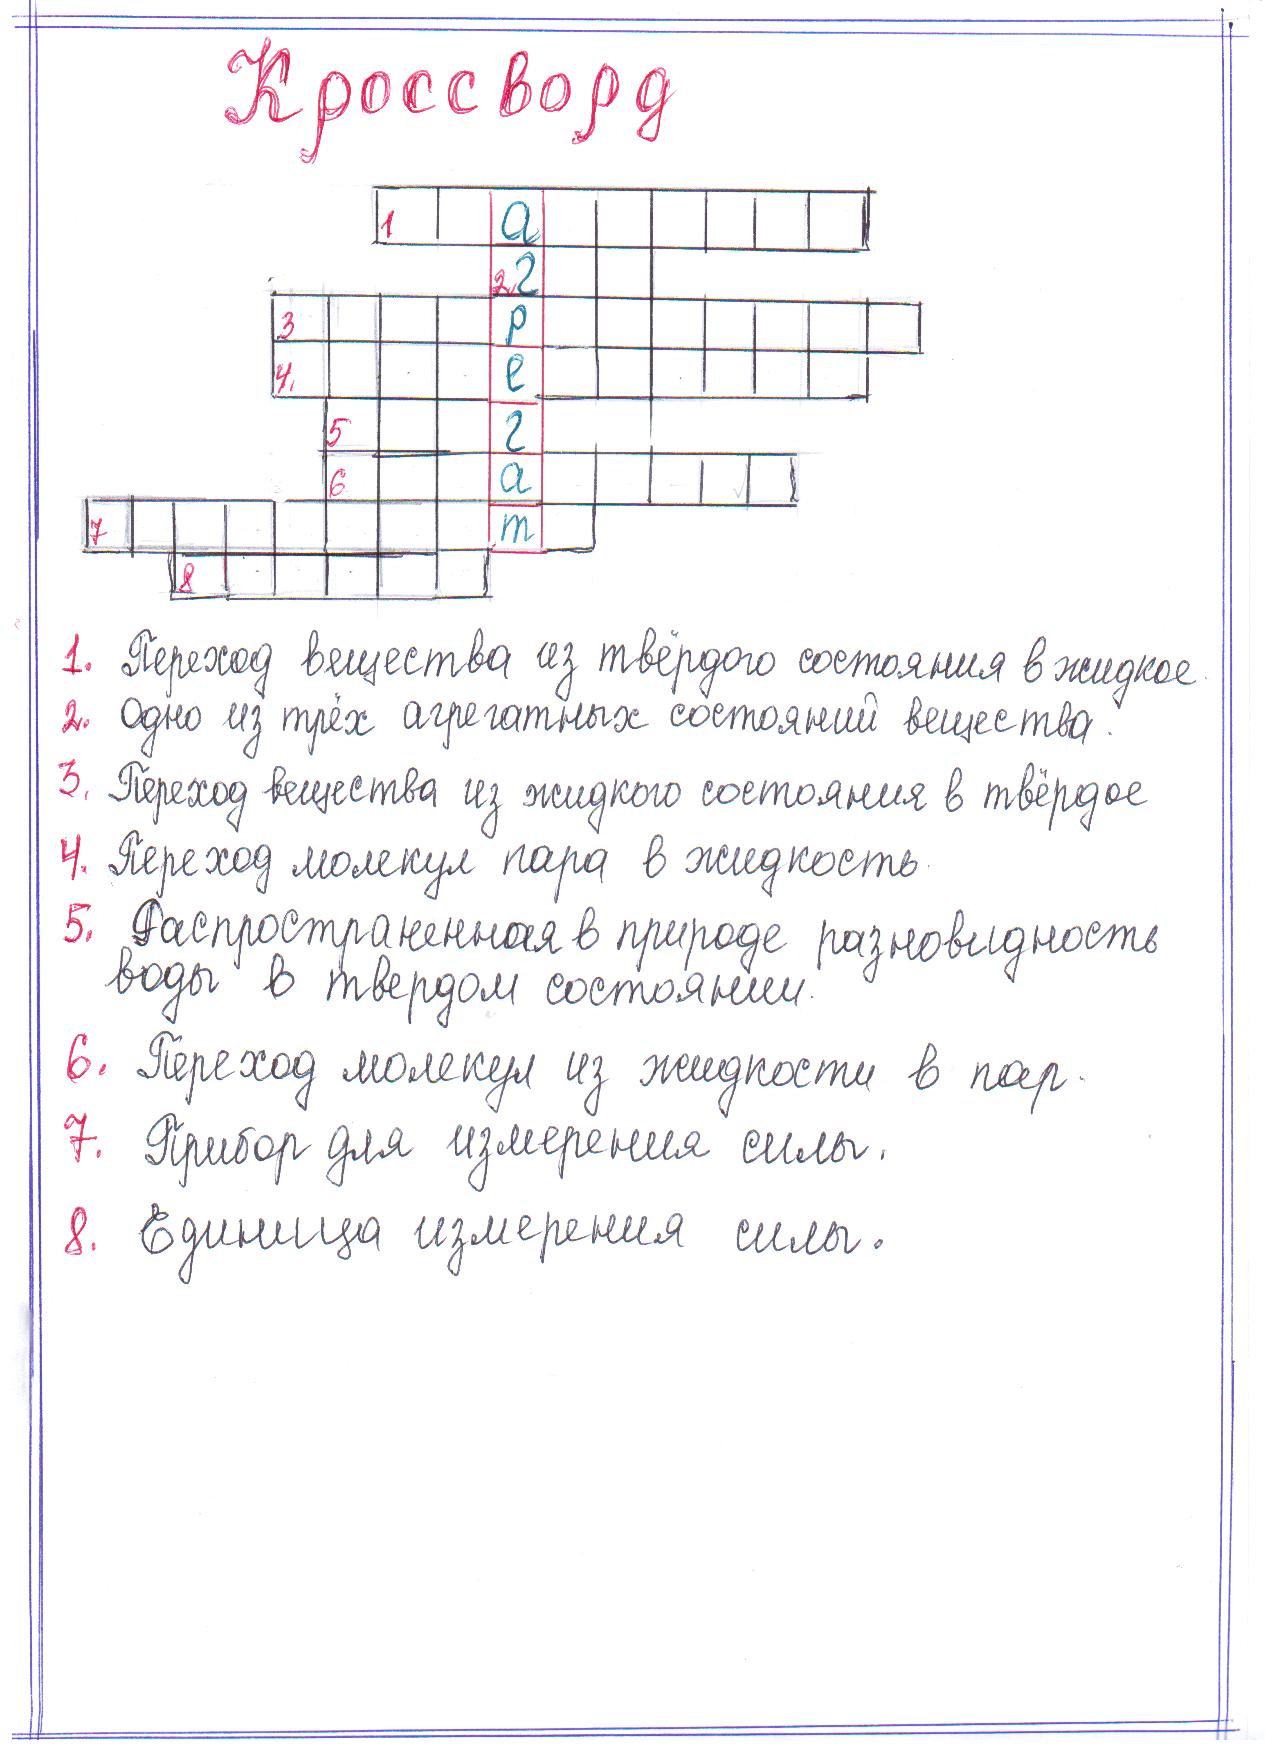 Кроссворд
1 а
2 г
3 р
4. е
5 г
6 а
7 т
8
1. Переход вещества из твёрдого состояния в жидкое.
2. Одно из трёх агрегатных состояний вещества.
3. Переход вещества из жидкого состояния в твёрдое
4. Переход молекул пара в жидкость.
5. Распространенная в природе разновидность
воды в твердом состоянии.
6. Переход молекул из жидкости в пар.
7. Прибор для измерения силы.
8. Единица измерения силы.